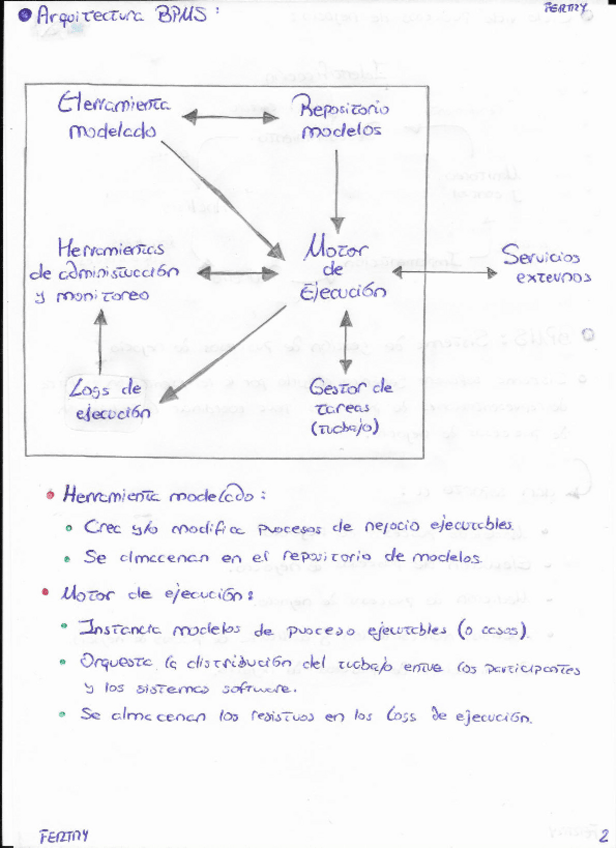 Arquitectura BPMS:
FERTRY
Herramienta
modelado
Repositorio
modelos
Herramientas
de administración
y monitoreo
Motor
de
Ejecución
Servicios
externos
Logs de
ejecución
Gestor de
tareas
(trabajo)
Herramienta modelado:
Crea y/o modifica procesos de negocio ejecutables.
Se almacenan en el repositorio de modelos.
Motor de ejecución:
Instancia modelos de proceso ejecutables (o casos)
Orquesta la distribución del trabajo entre los participantes
y los sistemas software.
Se almacenan los registros en los logs de ejecución.
FERTRY
2